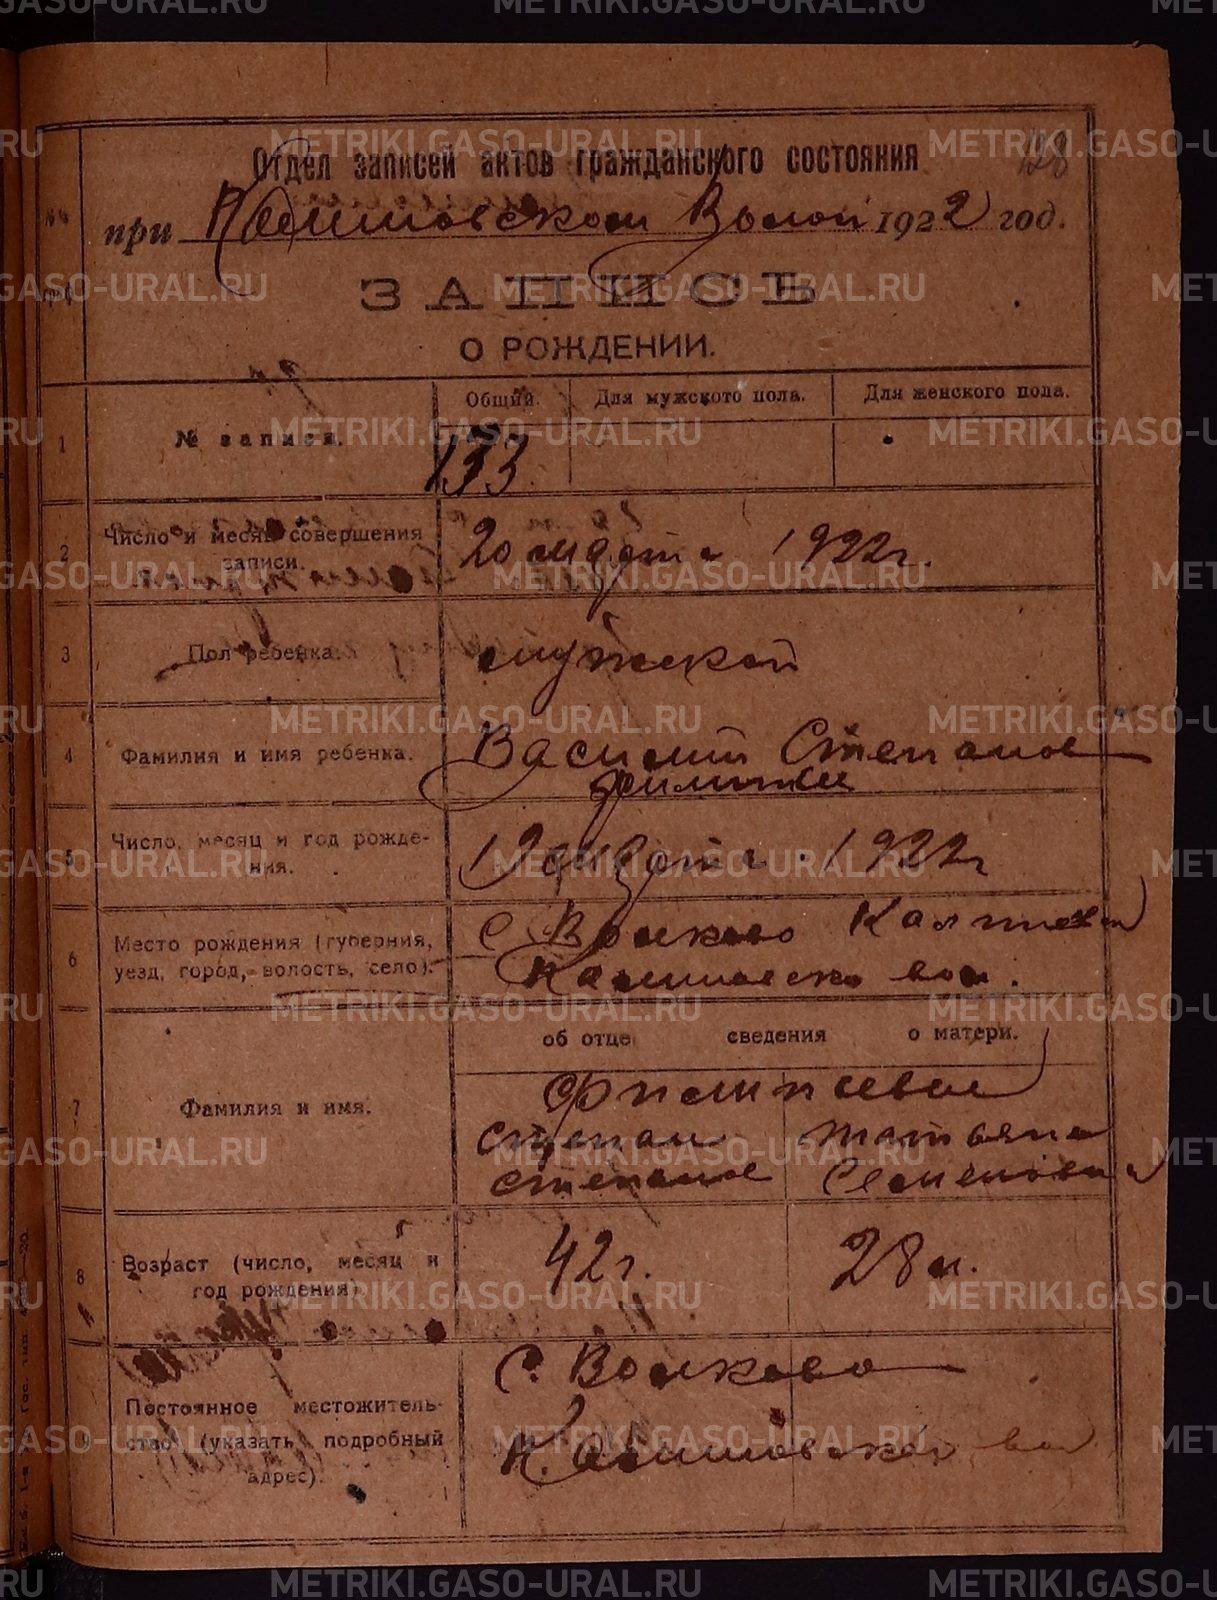 128
Отдел записей актов гражданского состояния
при 1922 год.
ЗАПИСЬ
О РОЖДЕНИИ.
Общий. Для мужского пола. Для женского пола.
1 № записи. 133
2 Число и месяц совершения записи. 20 марта 1922 г.
3 Пол ребенка. мужской
4 Фамилия и имя ребенка. Василий Степанов
5 Число, месяц и год рожде-
ния. марта 1922 г
6 Место рождения (губерния, с Волково
уезд, город, волость, село). вол.
об отце сведения о матери.
7 Фамилия и имя. Филипьевы
Степан Татьяна
Степанов Семенова
8 Возраст (число, месяц и 42 г. 28 л.
год рождения)
с. Волково
Постоянное местожитель-
ство (указать подробный
адрес).
METRIKI.GASO-URAL.RU